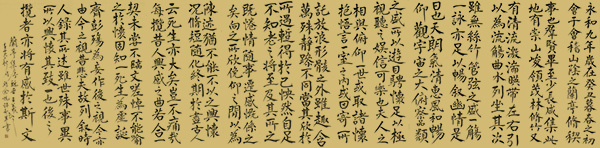 永和九年歲在癸丑暮春之初
會于會稽山陰之蘭亭脩禊
事也群賢畢至少長咸集此
地有崇山峻領茂林脩竹又
有清流激湍暎帶左右引
以為流觴曲水列坐其次
雖無絲竹管弦之盛一觴
一詠亦足以暢敘幽情是
日也天朗氣清惠風和暢
仰觀宇宙之大俯察品類
之盛所以遊目騁懷足以極
視聽之娛信可樂也夫人之
相與俯仰一世或取諸懷
抱悟言一室之內或因寄所
託放浪形骸之外雖趣舍
萬殊靜躁不同當其欣於
所遇暫得於己怏然自足
不知老之將至及其所之
既惓情隨事遷感慨係之
矣向之所欣俛仰之間以為
陳迹猶不能不以之興懷
況脩短隨化終期於盡古人
云死生亦大矣豈不痛哉
每攬昔人興感之由若合一
契未嘗不臨文嗟悼不能喻
之於懷固知一死生為虛誕
齊彭殤為妄作後之視今亦
由今之視昔悲夫故列敘時
人錄其所述雖世殊事異
所以興懷其致一也後之
攬者亦將有感於斯文